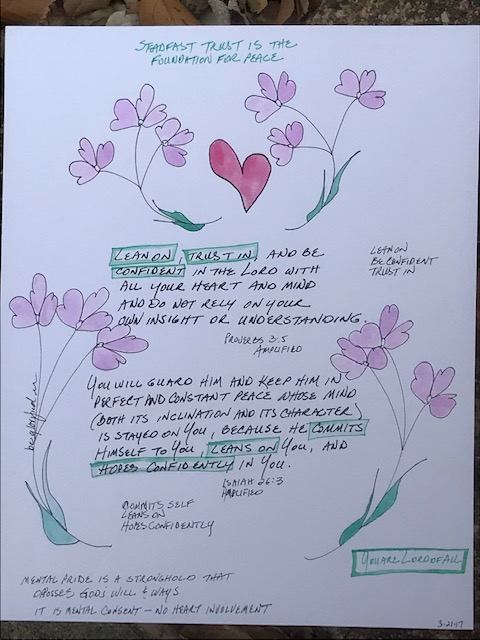 STEADFAST TRUST IS THE
FOUNDATION FOR PEACE
LEAN ON, TRUST IN, AND BE
CONFIDENT IN THE LORD WITH
ALL YOUR HEART AND MIND
AND DO NOT RELY ON YOUR
OWN INSIGHT OR UNDERSTANDING.
PROVERBS 3:5
AMPLIFIED
LEAN ON
BE CONFIDENT
TRUST IN
YOU WILL GUARD HIM AND KEEP HIM IN
PERFECT AND CONSTANT PEACE WHOSE MIND
(BOTH ITS INCLINATION AND ITS CHARACTER)
IS STAYED ON YOU, BECAUSE HE COMMITS
HIMSELF TO YOU, LEANS ON YOU, AND
HOPES CONFIDENTLY IN YOU.
ISAIAH 26:3
AMPLIFIED
COMMITS SELF
LEANS ON
HOPES CONFIDENTLY
YOU ARE LORD OF ALL
MENTAL PRIDE IS A STRONGHOLD THAT
OPPOSES GODS WILL & WAYS
IT IS MENTAL CONSENT - NO HEART INVOLVEMENT
3-21-17